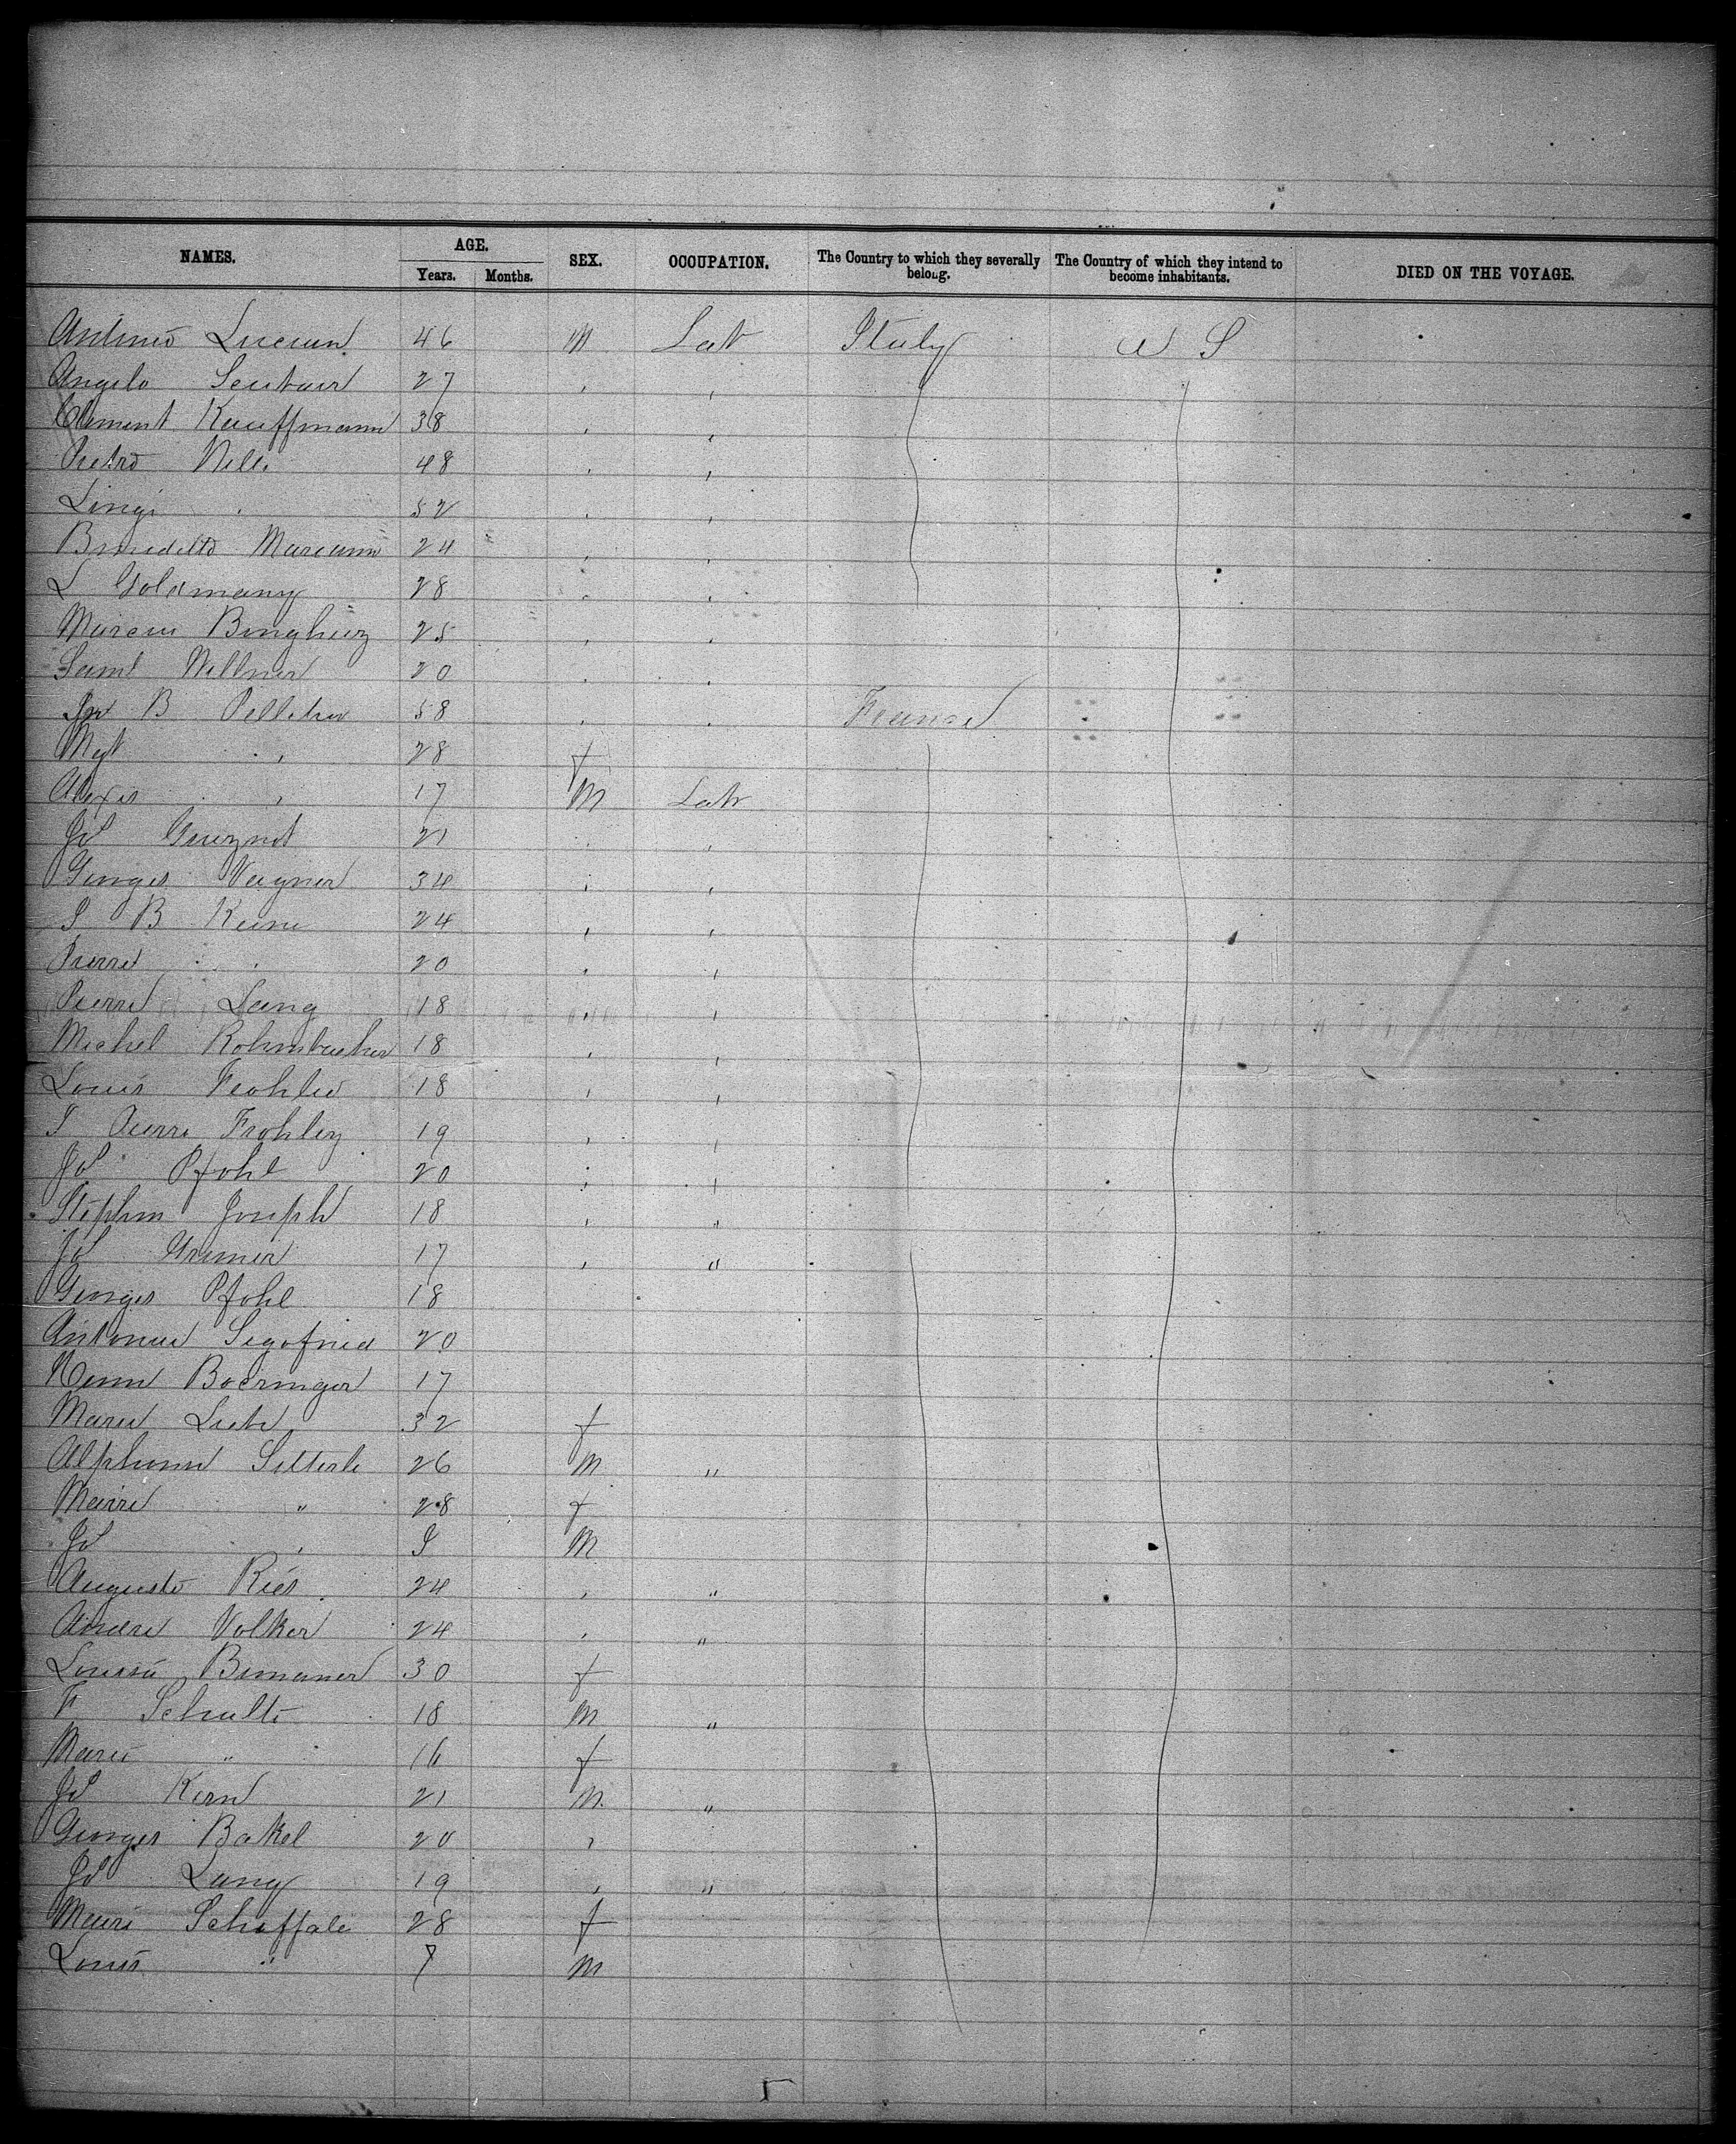 NAMES. AGE. SEX. OCCUPATION. The Country to which they severally belong. The Country of which they intend to become inhabitants. DIED ON THE VOYAGE.
Years. Months.
Antonio 46 M Lab Italy U S
Angelo 27 , ,
Clement Kauffmann 38 , ,
Pietro Nelli 48 , ,
Luigi , 52 , ,
Benedetto Mareann 24 , ,
L Goldmann 28 , ,
25 , ,
Saml Wellner 20 , ,
B Pelletier 58 , , France
Mgt , 28 f
Alexis , 17 M Lab
Js 21 , ,
Georges Vagner 34 , ,
J B 24 , ,
Pierre , 20 , ,
Pierre Lang 18 , ,
Michel Rohmbacher 18 , ,
Louis 18 , ,
J Pierre Frohley 19 , ,
Js Pfohl 20 , ,
Stephen Joseph 18 , "
Js 17 , "
Georges Pfohl 18
Antoine Segofried 20
Boeringer 17
Marie 32 f
Alphonse Sitterle 26 M "
Marie " 28 f
Js , 9 M
Auguste Ries 24 , "
Andre Volker 24 , "
Louisa 30 f
F Schulte 18 M "
Marie " 16 f
Js Kern 21 M "
Georges Bakel 20 ,
Js Lang 19 , "
Marie 28 f
Louis " 7 M